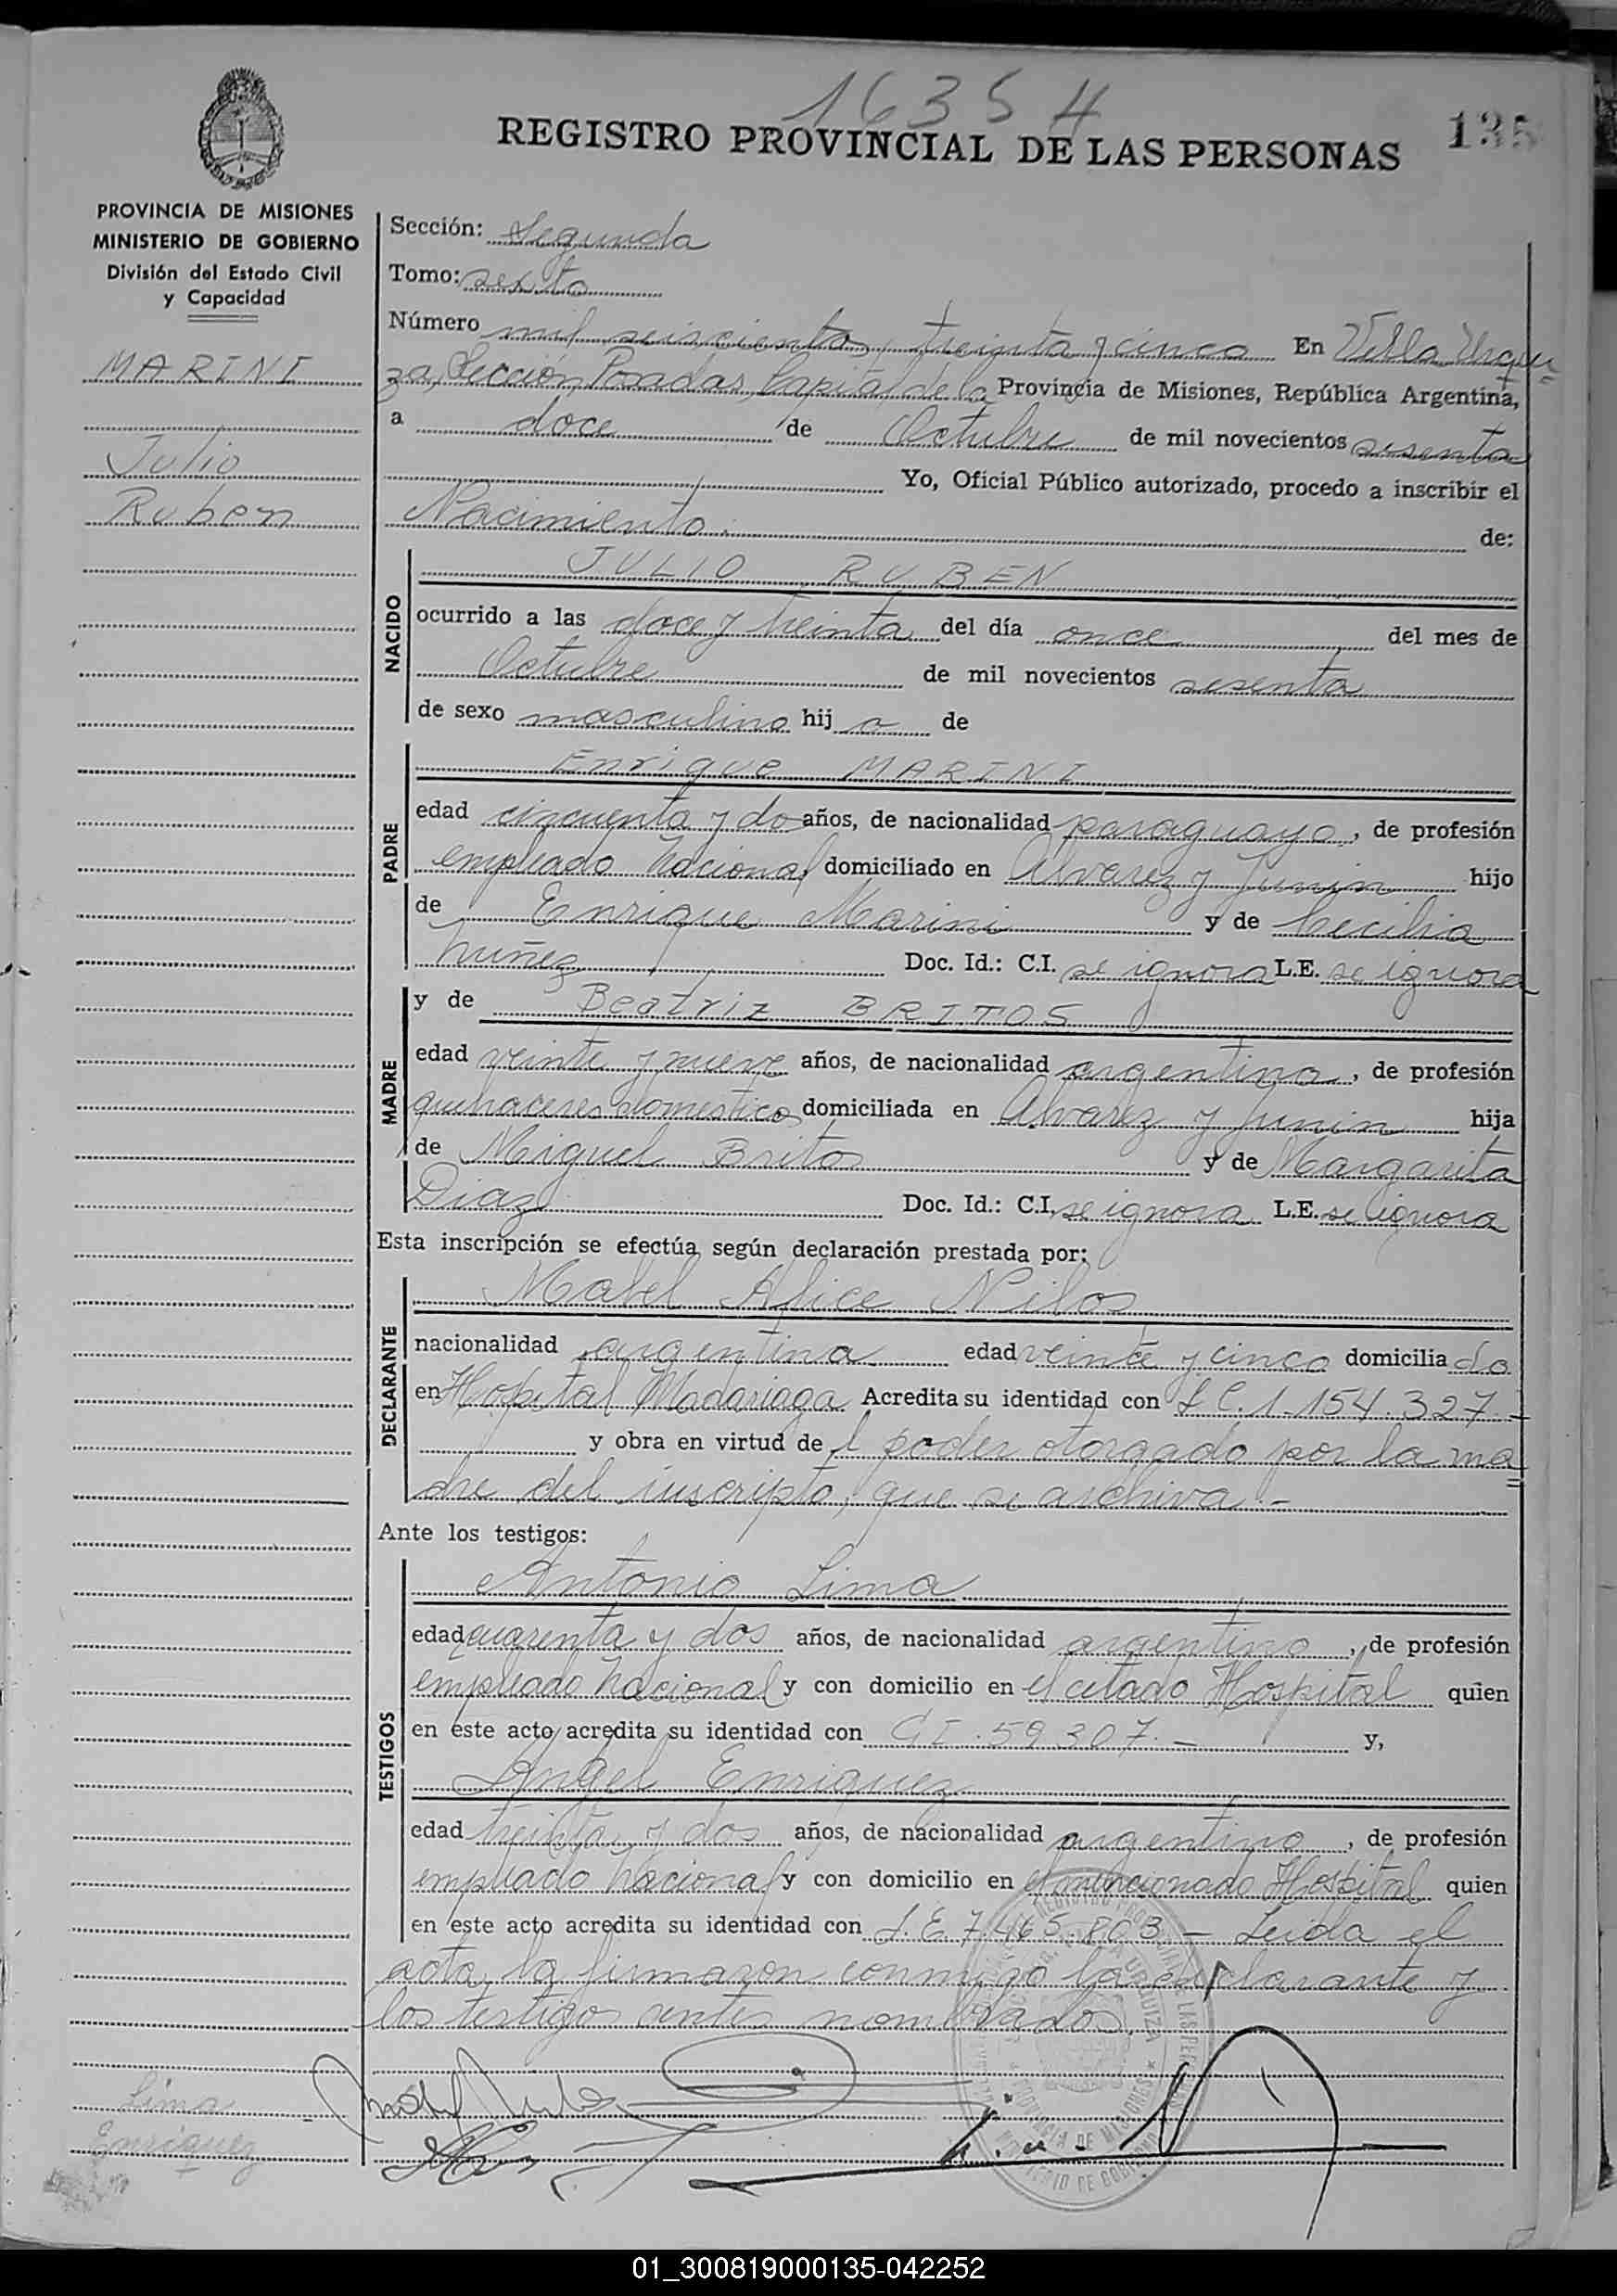 1635 H
REGISTRO PROVINCIAL DE LAS PERSONAS
135
PROVINCIA DE MISIONES
MINISTERIO DE GOBIERNO
División del Estado Civil
y Capacidad
MARINI
Julio
Ruben
Sección: Segunda
Tomo: sexto
Número mil seiscientos treinta y cinco En Villa Urqui
za, Sección Posadas, Capital de la Provincia de Misiones, República Argentina,
a doce de Octubre de mil novecientos sesenta
Yo, Oficial Público autorizado, procedo a inscribir el
Nacimiento de:
NACIDO
JULIO RUBEN
ocurrido a las doce y treinta del día once del mes de
Octubre de mil novecientos sesenta
de sexo masculino hij o de
PADRE
Enrique MARINI
edad cincuenta y dos años, de nacionalidad paraguayo, de profesión
empleado nacional domiciliado en Alvarez y Junin hijo
de Enrique Marini y de Cecilia
Nuñez Doc. Id.: C.I. se ignora L.E. se ignora
MADRE
y de Beatriz BRITOS
edad veinte y nueve años, de nacionalidad argentina, de profesión
quehaceres domesticos domiciliada en Alvarez y Junin hija
de Miguel Britos y de Margarita
Diaz Doc. Id.: C.I. se ignora L.E. se ignora
Esta inscripción se efectúa según declaración prestada por:
DECLARANTE
Mabel Alice Nilos
nacionalidad argentina edad veinte y cinco domicilia do
en Hospital Madariaga Acredita su identidad con L C. 1.154.327.-
y obra en virtud de l poder otorgado por la ma
dre del inscripto, que se archiva.-
Ante los testigos:
TESTIGOS
Antonio Lima
edad cuarenta y dos años, de nacionalidad argentino, de profesión
empleado nacional y con domicilio en el citado Hospital quien
en este acto acredita su identidad con CI.59307.- y,
Angel Enriquez
edad treinta y dos años, de nacionalidad argentino, de profesión
empleado nacional y con domicilio en el mencionado Hospital quien
en este acto acredita su identidad con L.E.7.465.803 - Leida el
acta, la firmaron conmigo la declarante y
los testigos antes nombrados.
Lima
Enriquez
01_300819000135-042252